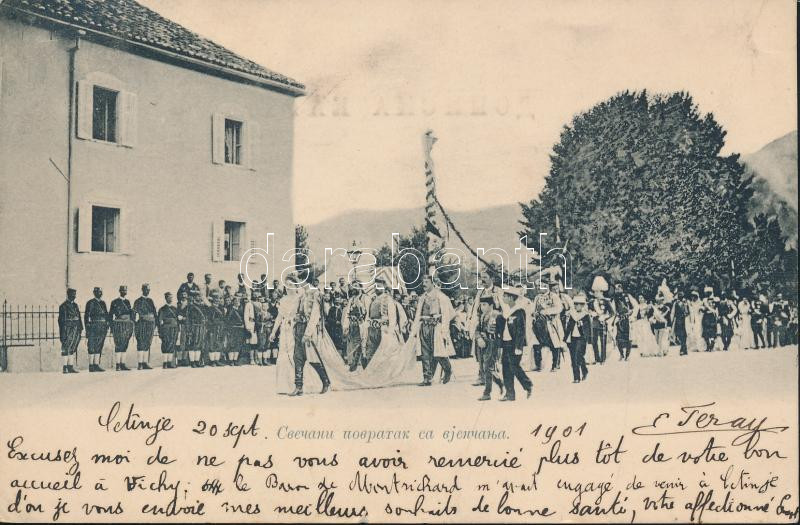 ДОПИСНА
darabanth
Cetinje 20 sept. Свечани повратак са вјенчања. 1901 E Teray
Excusez moi de ne pas vous avoir remercié plus tôt de votre bon
accueil à Vichy; le Baron de Montrichard m'ayant engagé de venir à Cetinje
d'où je vous envoie mes meilleurs souhaits de bonne santé, votre affectionné